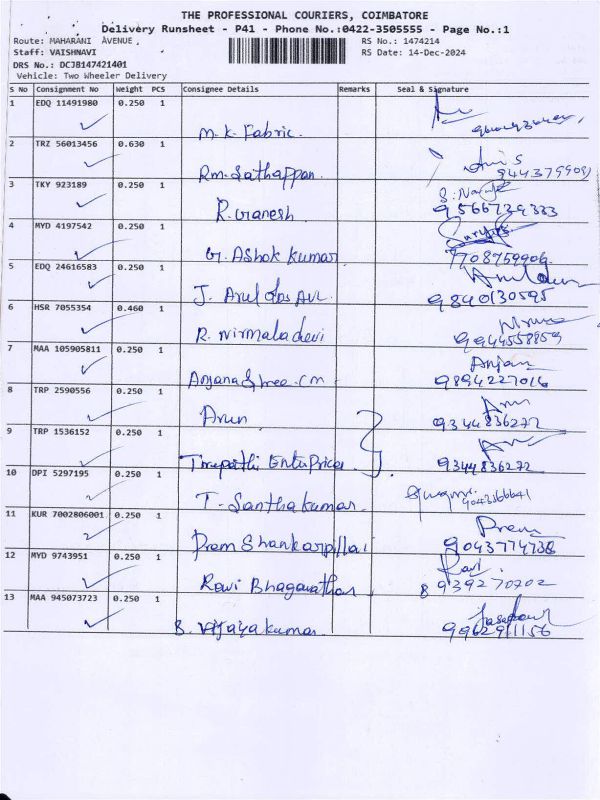 THE PROFESSIONAL COURIERS, COIMBATORE
Delivery Runsheet - P41 - Phone No.:0422-3505555 - Page No.:1
Route: MAHARANI AVENUE RS No.: 1474214
Staff: VAISHNAVI RS Date: 14-Dec-2024
DRS No.: DCJB147421401
Vehicle: Two Wheeler Delivery
S No Consignment No Weight PCS Consignee Details Remarks Seal & Signature
1 EDQ 11491980 0.250 1
M.K. Fabric.
2 TRZ 56013456 0.630 1
Rm. Sathappan.
3 TKY 923189 0.250 1
R. Ganesh. 9566739333
4 MYD 4197542 0.250 1
G. Ashok Kumar 7708759906
5 EDQ 24616583 0.250 1
9840130595
6 HSR 7055354 0.460 1
R. Nirmaladevi 9944558959
7 MAA 105905811 0.250 1 Anjana
9894227016
8 TRP 2590556 0.250 1
Arun 9344836272
9 TRP 1536152 0.250 1
9344836272
10 DPI 5297195 0.250 1
T. Santhakumar.
11 KUR 7002806001 0.250 1 Prem
Prem Shankarpillai 9043774738
12 MYD 9743951 0.250 1 Ravi
Ravi Bhagavathar 8939270702
13 MAA 945073723 0.250 1
S. Vijayakumar. 9962911156